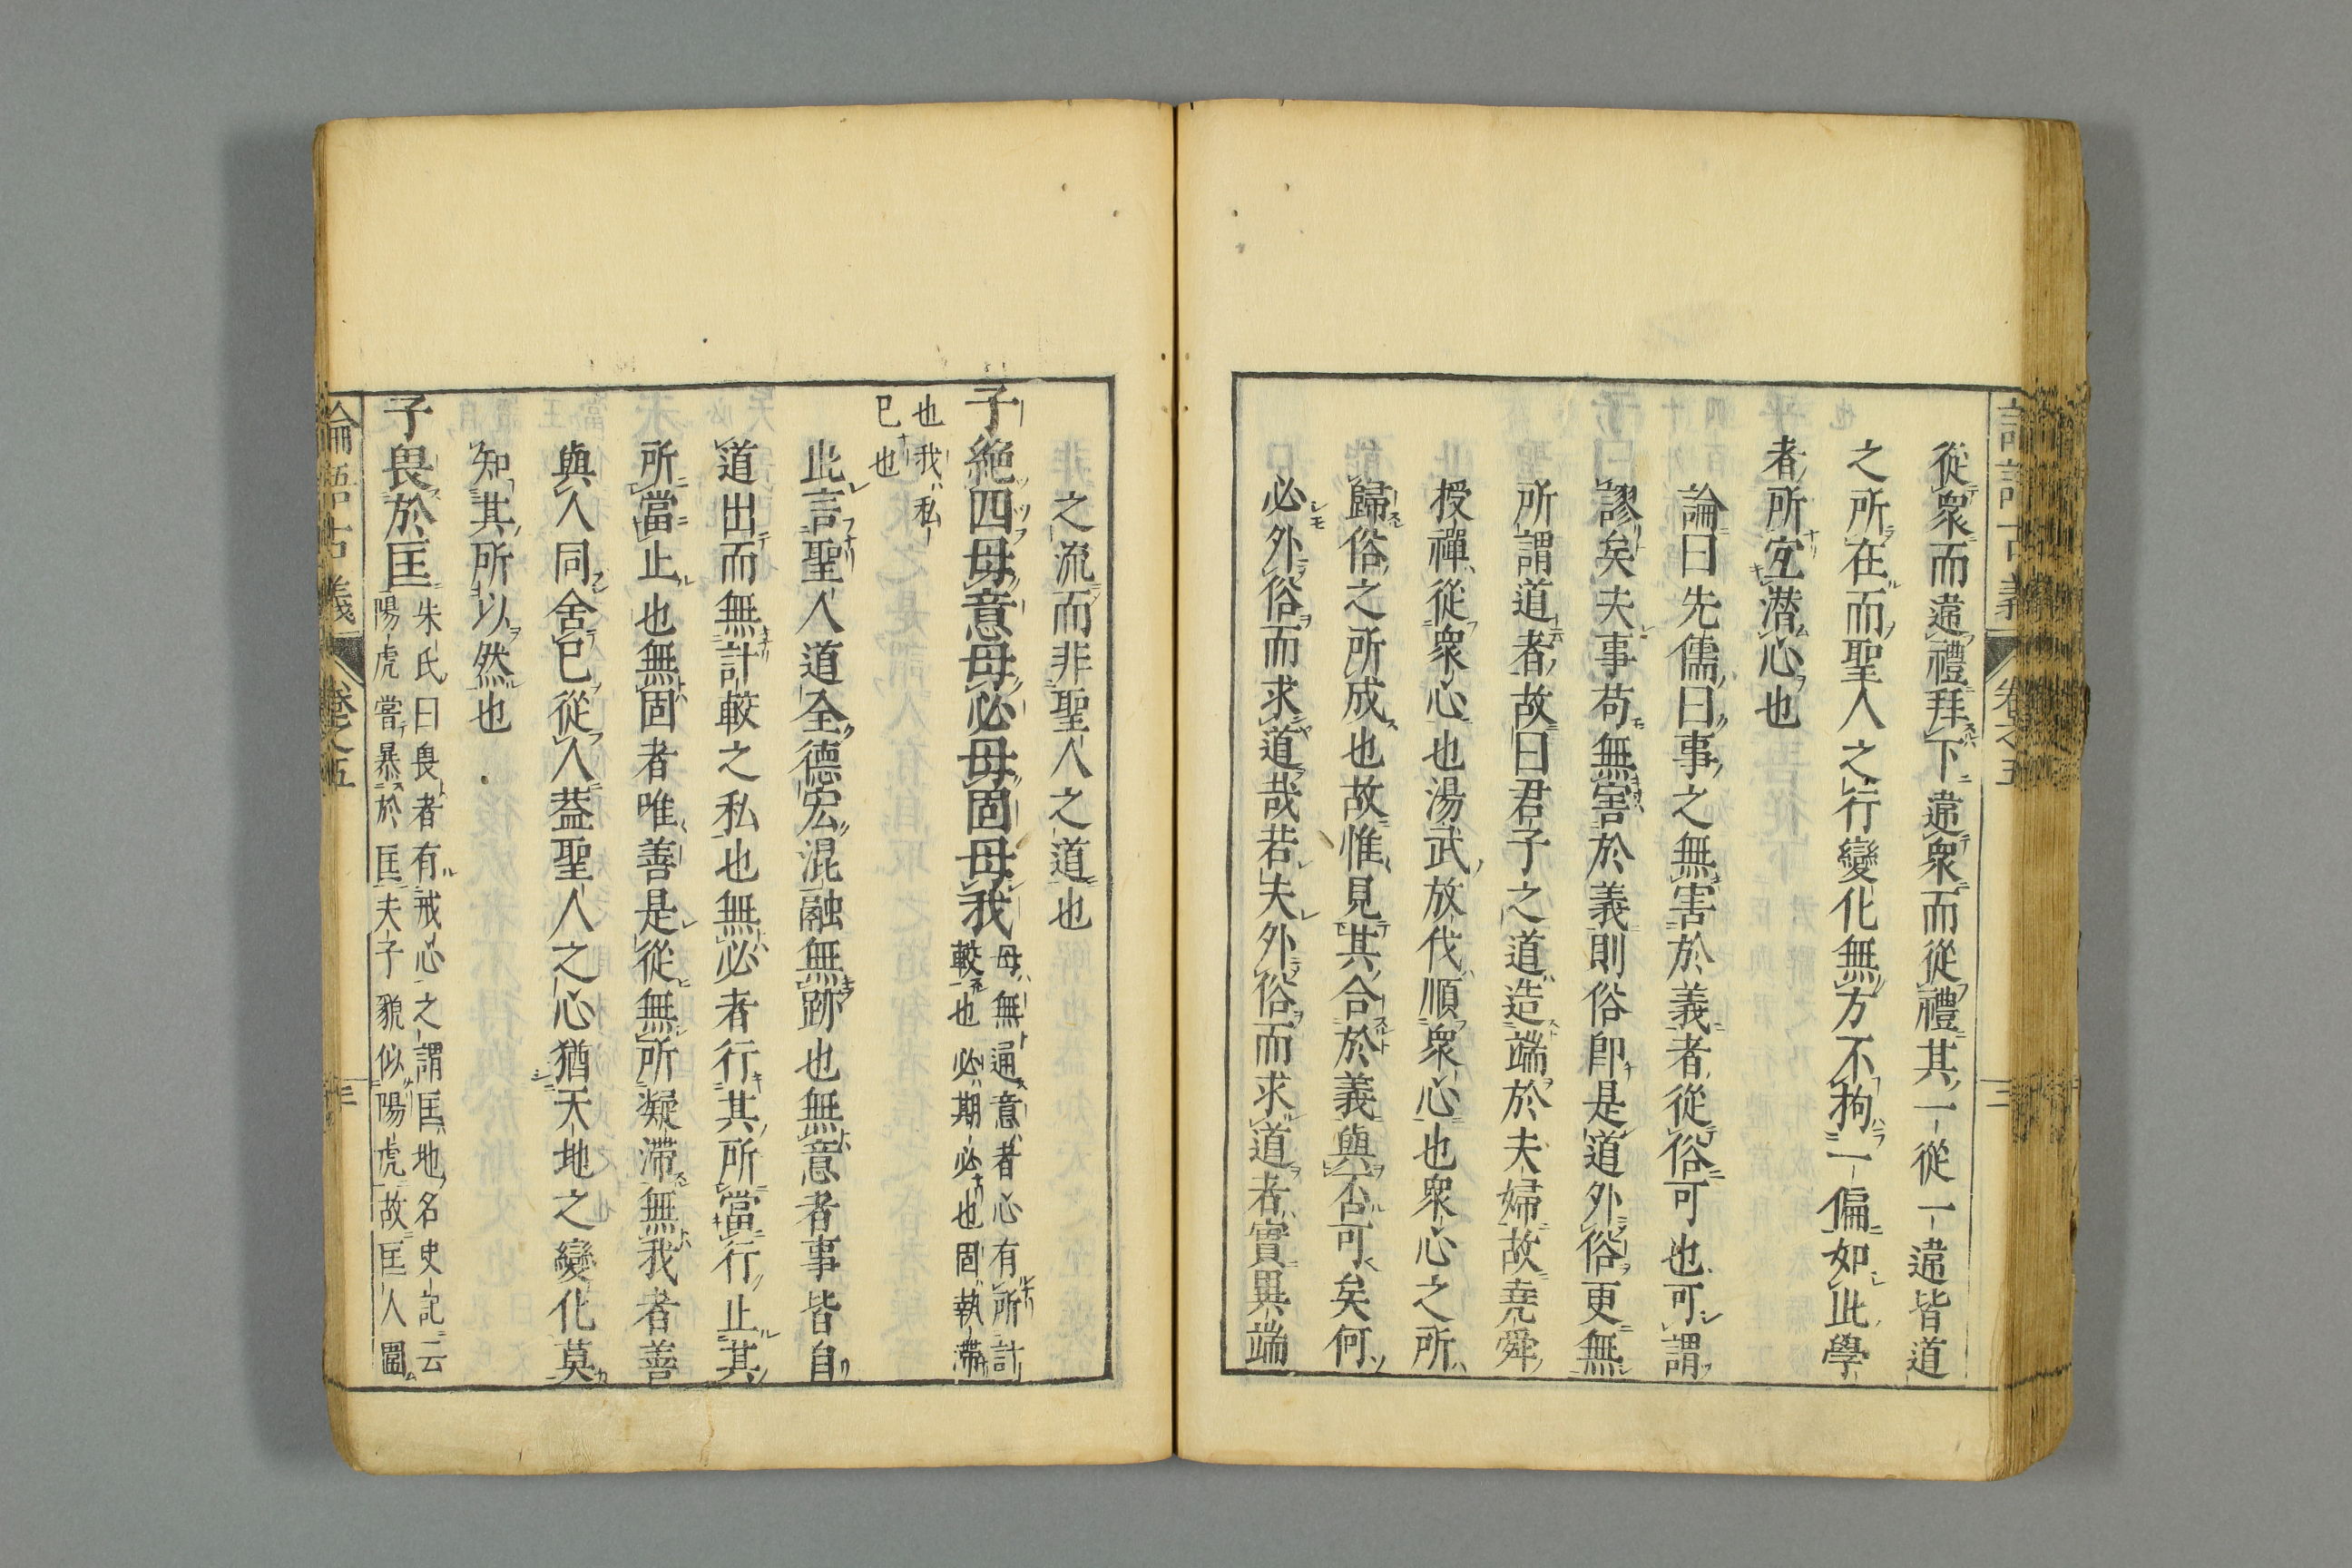 從衆而違禮拜下違衆而從禮其一從一違皆道
之所在而聖人之行變化無方不拘一偏如此學
者所宜潜心也
論曰先儒曰事之無害於義者從俗可也可謂
謬矣夫事苟無害於義則俗即是道外俗更無
所謂道者故曰君子之道造端於夫婦故堯舜
授禪從衆心也湯武放伐順衆心也衆心之所
歸俗之所成也故惟見其合於義與否可矣何
必外俗而求道哉若夫外俗而求道者實異端
之流而非聖人之道也
子絶四毋意毋必毋固毋我
毋無通意者心有所計
較也必期必也固執滯
也我私
已也
此言聖人道全德宏混融無跡也無意者事皆自
道出而無計較之私也無必者行其所當行止其
所當止也無固者唯善是從無所凝滯無我者善
與人同舍已從人葢聖人之心猶天地之變化莫
知其所以然也
子畏於匡
朱氏曰畏者有戒心之謂匡地名史記云
陽虎嘗暴於匡夫子貌似陽虎故匡人圍
論語古義
卷之五
三